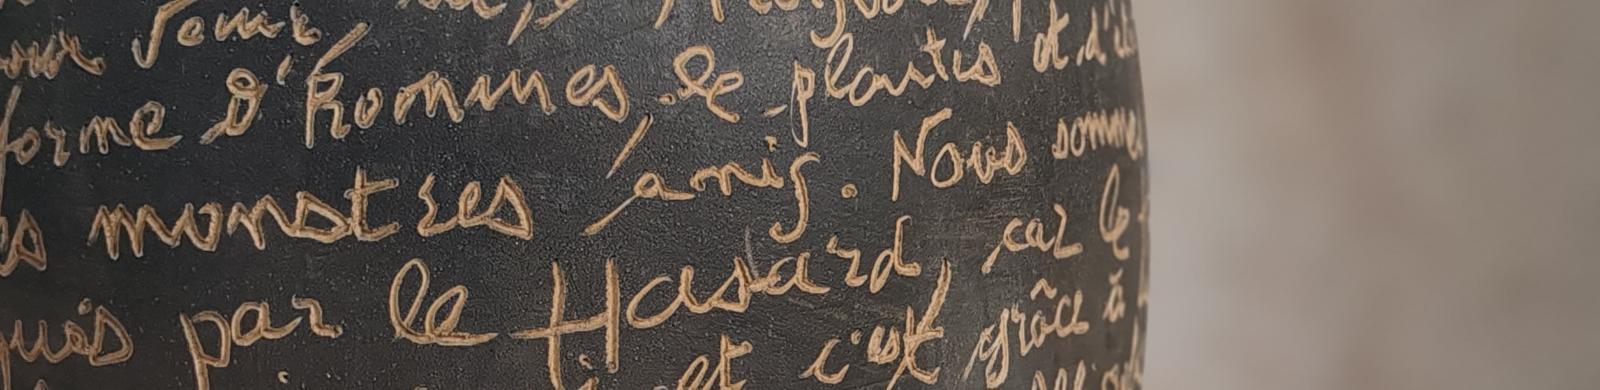 pour venir
forme d'hommes, de plantes et d'
monstres amis. Nous somme
par le Hasard, car le
et c'est grâce à